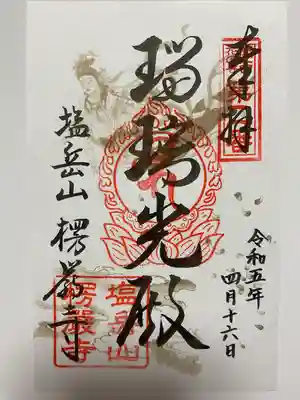 奉拝
令和五年
四月十六日
瑠璃光殿
塩岳山 楞厳寺
塩岳山
楞嚴寺